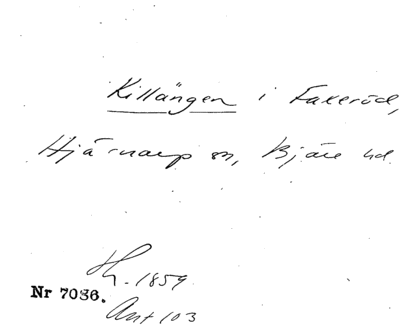 Killängen i Faxeröd,
Hjärnarp sn, Bjäre hd
Hh. 1859
Nr 7036.
Ant 103